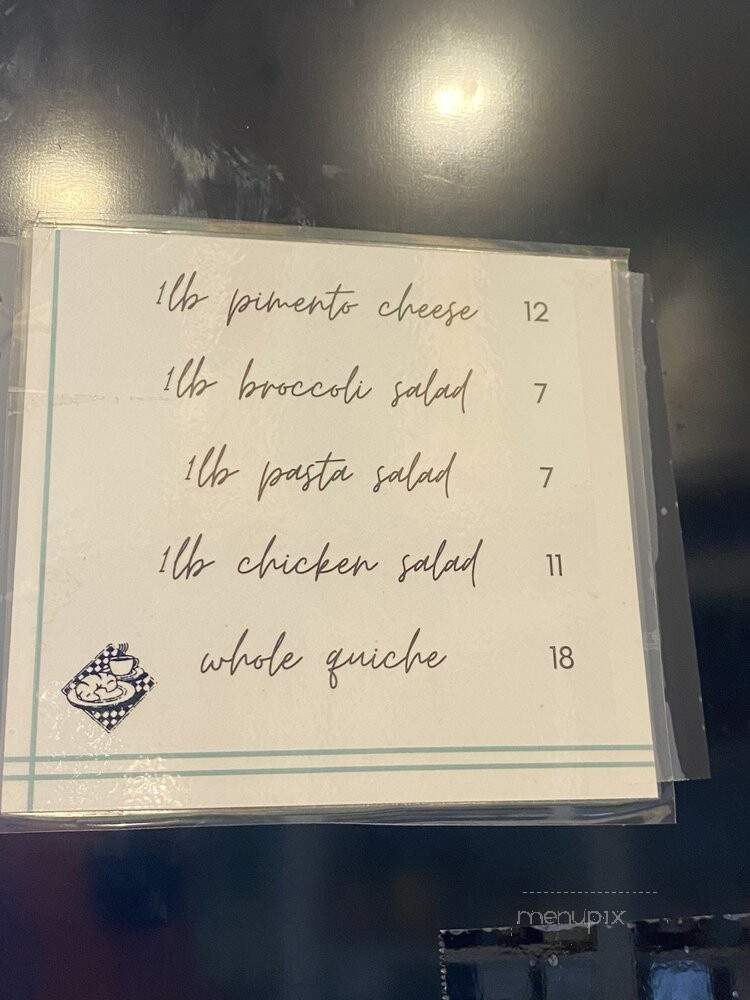 1lb pimento cheese 12
1lb broccoli salad 7
1lb pasta salad 7
1lb chicken salad 11
whole quiche 18
menupix